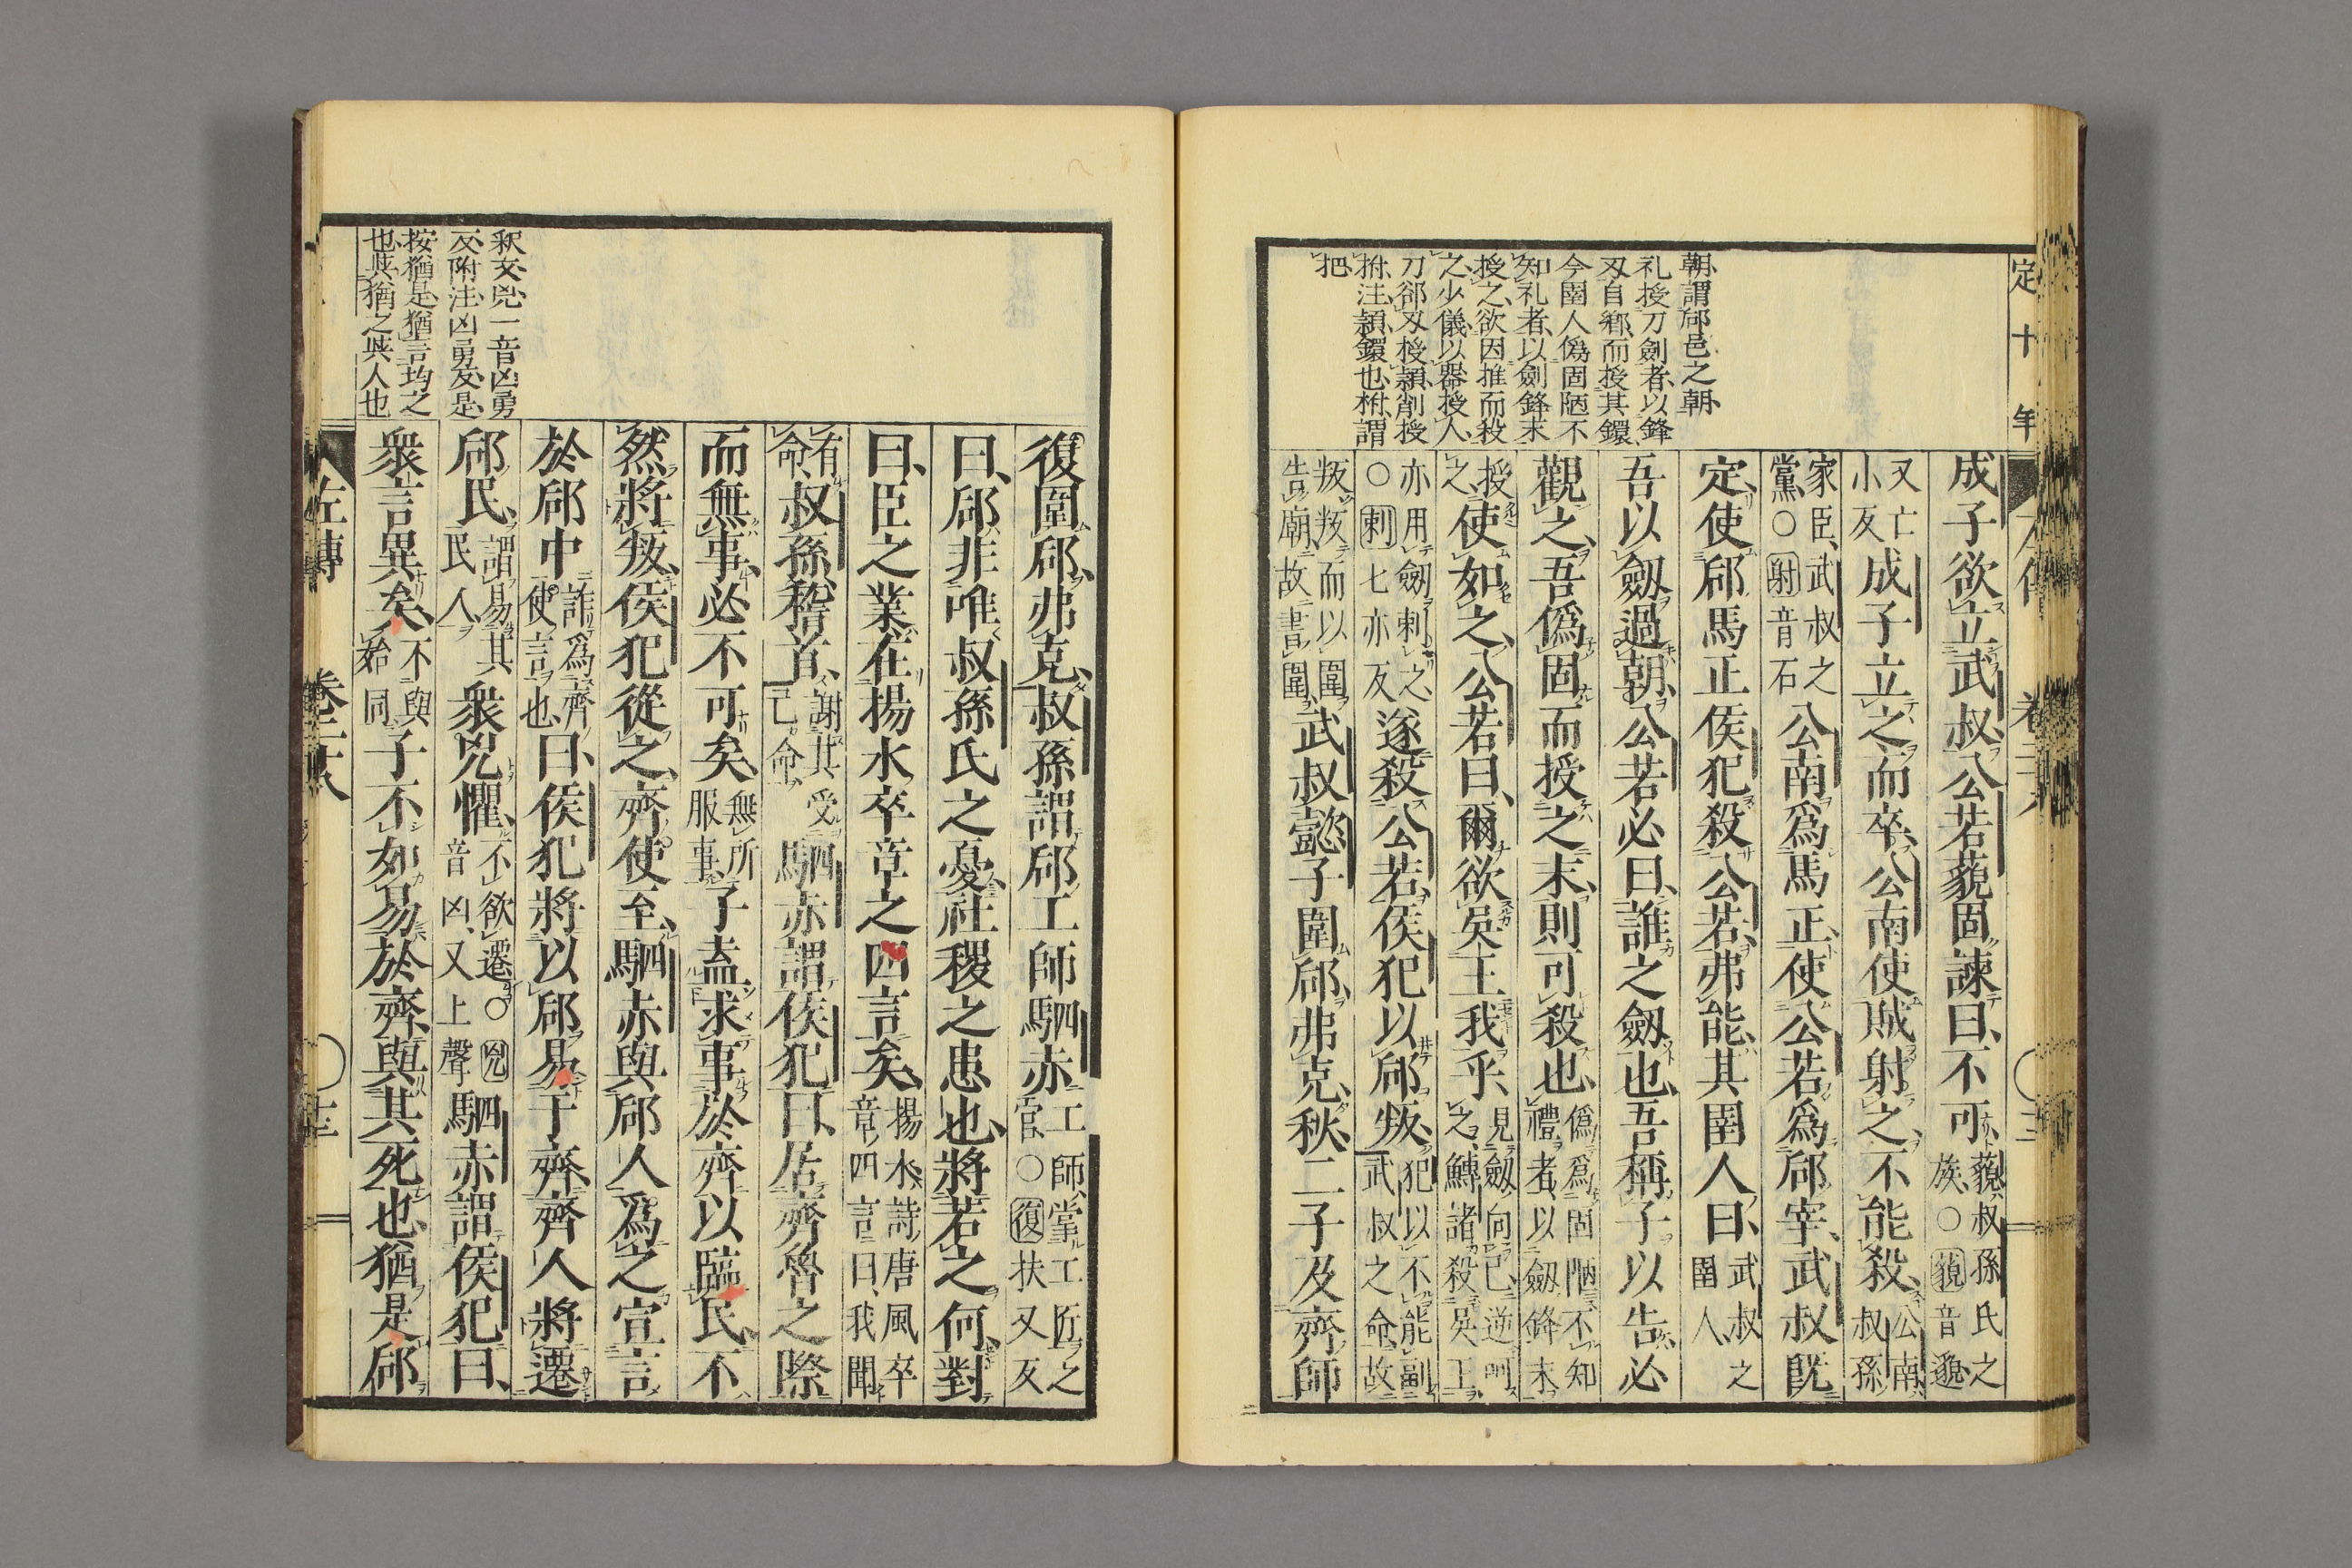 定十年
朝、謂郈邑之朝、
礼授刀劍者、以鋒
刄自鄕、而授其鐶
今圉人僞固陋不
知礼者、以劍鋒末
授之、欲因推而殺
之、少儀、以器授人、
刀郤刄授頴、削授
拊、注、頴、鐶也、柎、謂
把
成子欲立武叔、公若藐固諫曰、不可、藐、叔孫氏之族、○藐音邈
又亡小反成子立之而卒、公南使賊射之、不能殺、公南、叔孫
家臣、武叔之黨、○射音石公南爲馬正、使公若爲郈宰、武叔旣
定、使郈馬正侯犯殺公若、弗能、其圉人曰、武叔之圉人、
吾以劒過朝、公若必曰、誰之劒也、吾稱子以告、必
觀之、吾僞固而授之末、則可殺也、僞爲固陋不知禮者、以劒鋒末
授之、使如之、公若曰、爾欲吳王我乎、見劒向己、逆呵之、鱄諸殺吳王、
亦用劒刺之、○刺七亦反遂殺公若、侯犯以郈叛、犯以不能副武叔之命、故
叛、叛而以圍告廟、故書圍、武叔懿子圍郈、弗克、秋、二子及齊師
復圍郈、弗克、叔孫謂郈工師駟赤工師、掌工匠之官、○復扶又反
曰、郈、非唯叔孫氏之憂、社稷之患也、將若之何、對
曰、臣之業、在揚水卒章之四言矣、揚水、詩唐風卒章、四言曰、我聞
有命、叔孫稽首、謝其受己命、駟赤謂侯犯曰、居齊魯之際
而無事、必不可矣、無所服事、子盍求事於齊以臨民、不
然、將叛、侯犯從之、齊使至、駟赤與郈人爲之宣言
於郈中詐爲齊使言也、曰、侯犯將以郈易于齊、齊人將遷
郈民、謂易其民人、衆兇懼、不欲遷、○兇音凶、又上聲駟赤謂侯犯曰、
衆言異矣、不與始同、子不如易於齊、與其死也、猶是郈
釈文、兇、一音凶勇
反、附注、凶勇反、是、
按、猶是、猶言均之
也、與、猶之與人也
左傳　卷二十八　十三